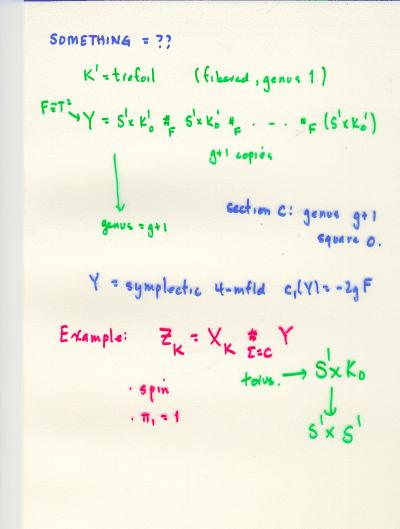 SOMETHING = ??
K' = trefoil (fibered, genus 1)
F=T² → Y = S'×K'₀ #_F S'×K'₀ #_F . - . #_F (S'×K'₀)
g+1 copies
genus = g+1
section C: genus g+1
square 0.
Y = symplectic 4-mfld c₁(Y) = -2gF
Example: Z_K = X_K #_{Σ=C} Y
· spin
torus. → S'×K₀
· π₁ = 1
S'×S'